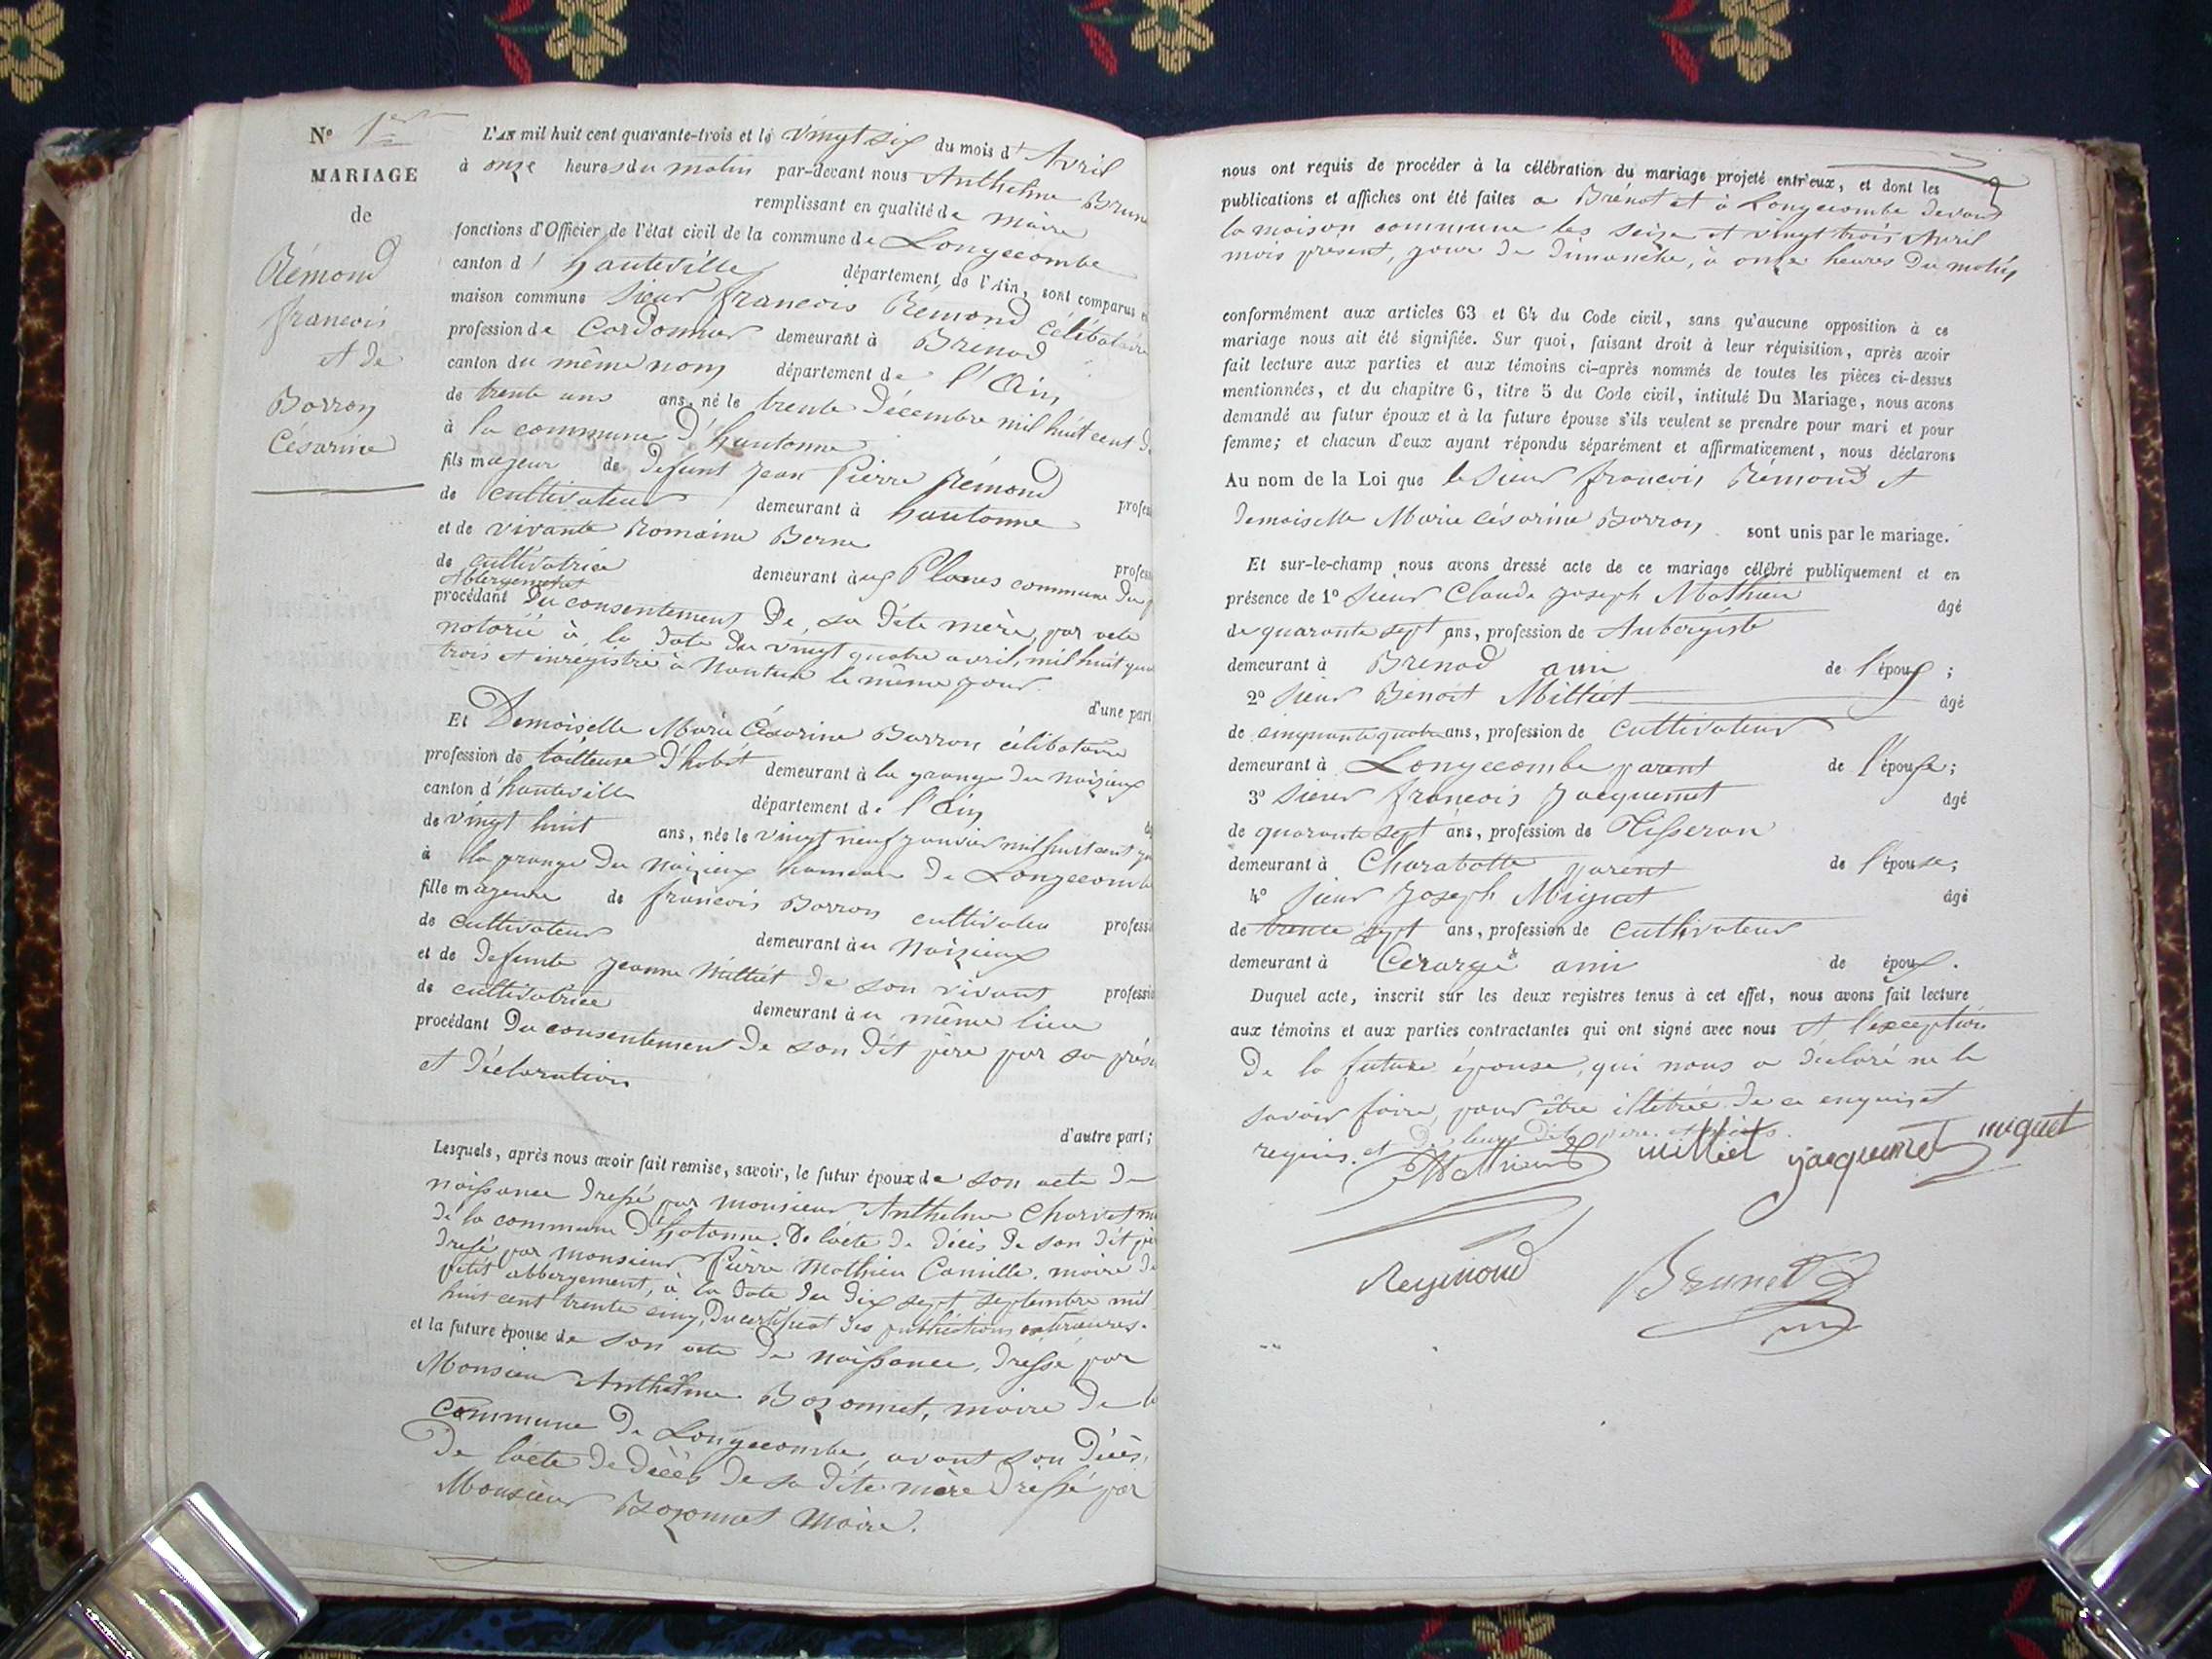 N° 1er
MARIAGE
de
Rémond
francois
et de
Borron
Césarine
L'AN mil huit cent quarante-trois et le vingt six du mois d' Avril
à onze heures du matin par-devant nous Anthelme Brun
remplissant en qualité de maire
fonctions d'Officier de l'état civil de la commune de Longecombe
canton d' hauteville département de l'Ain, sont comparus
maison commune Sieur francois Rémond célibataire
profession de Cordonnier demeurant à Brenod
canton du même nom département de l'Ain
de trente ans ans, né le trente Décembre mil huit cent
à la commune d'hautonne
fils majeur de Defunt Jean Pierre Rémond
de cultivateur demeurant à hautonne profes
et de vivante Romaine Berne
de cultivatrice demeurant aux Planes commune du profess
Abbergement
procédant Du consentement De sa dite mère, par acte
notarié à la date du vingt quatre avril, mil huit
trois et enrégistré à Nantua le même jour.
d'une part
Et Demoiselle Marie Césarine Borron célibataire
profession de tailleuse d'habit demeurant à la grange du Naizieux
canton d'hauteville département de l'Ain
de vingt huit ans, née le vingt neuf janvier mil huit cent
à la grange du Naizieux hameau de Longecombe
fille majeure de francois Borron cultivateu professi
de cultivateur demeurant au Naizieux
et de defunte Jeanne Milliet de son vivant professio
de cultivatrice demeurant au même lieu
procédant Du consentement De son dit père par sa prése
et Déclaration
d'autre part;
Lesquels, après nous avoir fait remise, savoir, le futur époux de son acte De
naissance dressé par Monsieur Anthelme Charvet
De la commune D'hotonne. De l'acte de décès De son dit
dressé par Monsieur Pierre Mathieu Camille. maire De
petit abbergement, à la date du dix sept septembre mil
huit cent trente cinq, Du certificat des publications
et la future épouse de son acte De naissance, dressé par
Monsieur Anthelme Bozonnet, maire De la
Commune De Longecombe, avant son Décès,
De l'acte de décès de sa dite mère Dressé par
Monsieur Bozonnet Maire.
nous ont requis de procéder à la célébration du mariage projeté entr'eux, et dont les
publications et affiches ont été faites a Brénod et à Longecombe devant
la maison commune les seize et vingt trois Avril
mois présent, jour de Dimanche, à onze heures du matin
conformément aux articles 63 et 64 du Code civil, sans qu'aucune opposition à ce
mariage nous ait été signifiée. Sur quoi, faisant droit à leur réquisition, après avoir
fait lecture aux parties et aux témoins ci-après nommés de toutes les pièces ci-dessus
mentionnées, et du chapitre 6, titre 5 du Code civil, intitulé Du Mariage, nous avons
demandé au futur époux et à la future épouse s'ils veulent se prendre pour mari et pour
femme; et chacun d'eux ayant répondu séparément et affirmativement, nous déclarons
Au nom de la Loi que le Sieur francois Rémond et
Demoiselle Marie césarine Borron sont unis par le mariage.
Et sur-le-champ nous avons dressé acte de ce mariage célébré publiquement et en
présence de 1° Sieur Claude Joseph Mathieu âgé
de quarante sept ans, profession de Aubergiste
demeurant à Brenod ami de l'époux;
2° Sieur Benoit Milliet âgé
de cinquante quatre ans, profession de cultivateur
demeurant à Longecombe parent de l'épouse;
3° Sieur francois Jacquemet âgé
de quarante sept ans, profession de Tisseran
demeurant à Charabotte parent de l'épouse;
4° Sieur Joseph Miguet âgé
de trente sept ans, profession de cultivateur
demeurant à ami de époux.
Duquel acte, inscrit sur les deux registres tenus à cet effet, nous avons fait lecture
aux témoins et aux parties contractantes qui ont signé avec nous et l'exception
De la future épouse, qui nous a déclaré ne le
savoir faire, pour être illétrée de ce enquis et
requis. et de leurs dits père
Mathieu milliet jacquemet miguet
Reymond
Brunet